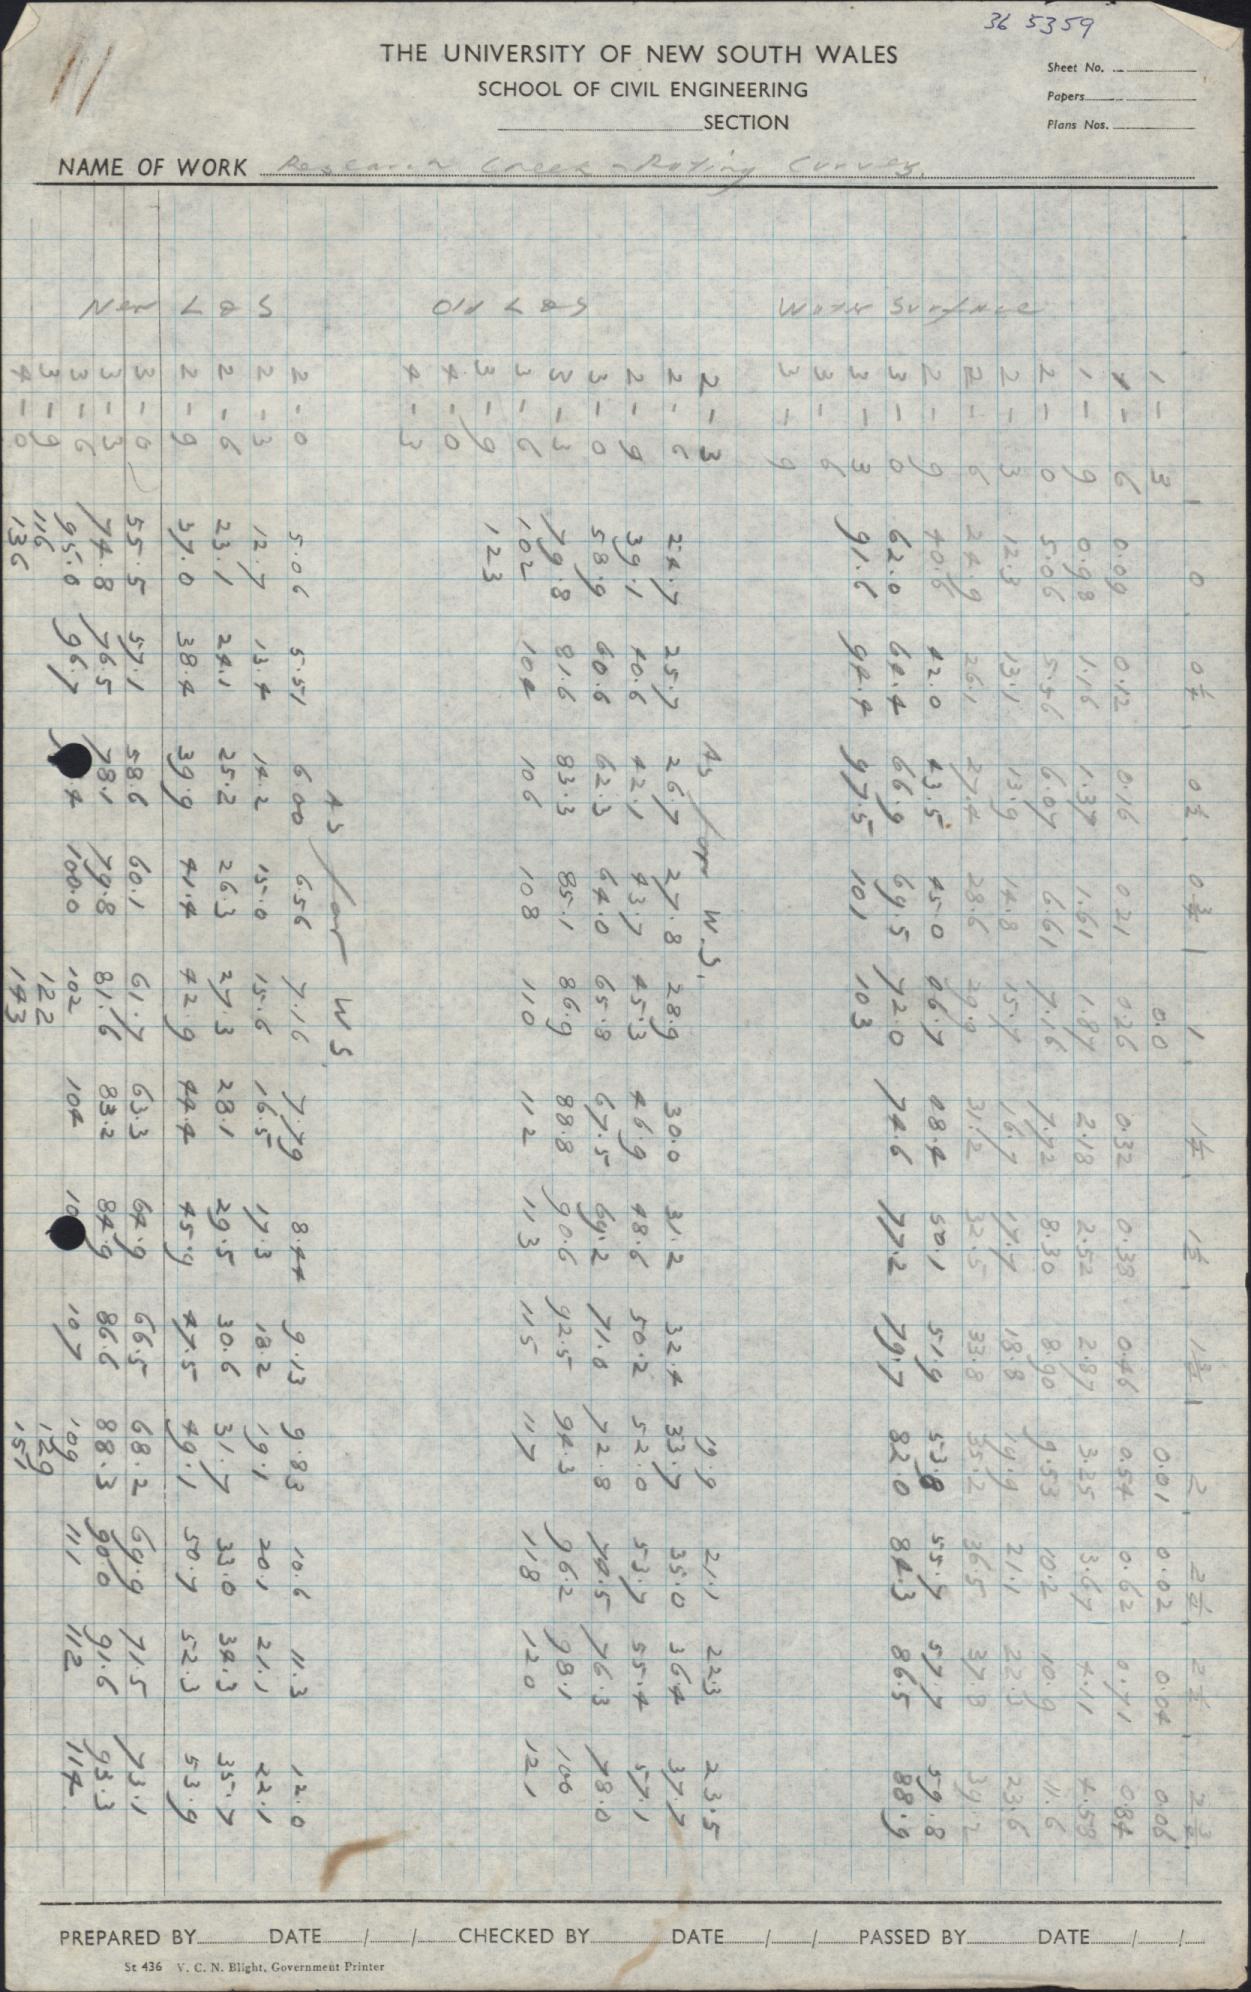 36 5359
THE UNIVERSITY OF NEW SOUTH WALES
SCHOOL OF CIVIL ENGINEERING
SECTION
Sheet No.
Papers
Plans Nos.
NAME OF WORK Research Creek - Rating Curves.
0 0¼ 0½ 0¾ 1 1¼ 1½ 1¾ 2 2¼ 2½ 2¾
1 - 3 0.0 0.01 0.02 0.04 0.06
1 - 6 0.09 0.12 0.16 0.21 0.26 0.32 0.38 0.46 0.54 0.62 0.71 0.84
1 - 9 0.98 1.16 1.37 1.61 1.87 2.18 2.52 2.87 3.25 3.67 4.11 4.58
Water Surface 2 - 0 5.06 5.56 6.07 6.61 7.16 7.72 8.30 8.90 9.53 10.2 10.9 11.6
2 - 3 12.3 13.1 13.9 14.8 15.7 16.7 17.7 18.8 19.9 21.1 22.3 23.6
2 - 6 24.9 26.1 27.4 28.6 29.9 31.2 32.5 33.8 35.2 36.5 37.8 39.2
2 - 9 40.6 42.0 43.5 45.0 46.7 48.4 50.1 51.9 53.8 55.7 57.7 59.8
3 - 0 62.0 64.4 66.9 69.5 72.0 74.6 77.2 79.7 82.0 84.3 86.5 88.9
3 - 3 91.6 94.4 97.5 101 103
3 - 6
3 - 9
2 - 3 As for W.S. 19.9 21.1 22.3 23.5
2 - 6 24.7 25.7 26.7 27.8 28.9 30.0 31.2 32.4 33.7 35.0 36.4 37.7
2 - 9 39.1 40.6 42.1 43.7 45.3 46.9 48.6 50.2 52.0 53.7 55.4 57.1
Old L & S 3 - 0 58.9 60.6 62.3 64.0 65.8 67.5 69.2 71.0 72.8 74.5 76.3 78.0
3 - 3 79.8 81.6 83.3 85.1 86.9 88.8 90.6 92.5 94.3 96.2 98.1 100
3 - 6 102 104 106 108 110 112 113 115 117 118 120 121
3 - 9 123
4 - 0
4 - 3
As for W S.
2 - 0 5.06 5.51 6.00 6.56 7.16 7.79 8.44 9.13 9.83 10.6 11.3 12.0
2 - 3 12.7 13.4 14.2 15.0 15.6 16.5 17.3 18.2 19.1 20.1 21.1 22.1
2 - 6 23.1 24.1 25.2 26.3 27.3 28.1 29.5 30.6 31.7 33.0 34.3 35.7
New L & S 2 - 9 37.0 38.4 39.9 41.4 42.9 44.4 45.9 47.5 49.1 50.7 52.3 53.9
3 - 0 55.5 57.1 58.6 60.1 61.7 63.3 64.9 66.5 68.2 69.9 71.5 73.1
3 - 3 74.8 76.5 78.1 79.8 81.6 83.2 84.9 86.6 88.3 90.0 91.6 93.3
3 - 6 95.0 96.7 100.0 102 104 107 109 111 112 114
3 - 9 116 122 129
4 - 0 136 143 151
PREPARED BY DATE / / CHECKED BY DATE / / PASSED BY DATE / /
St 436 V. C. N. Blight, Government Printer